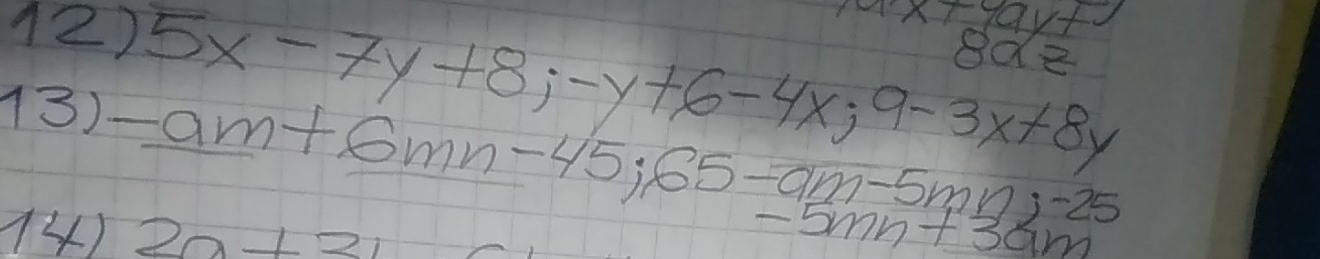 8az
12) 5x - 7y + 8; -y + 6 - 4x; 9 - 3x + 8y
13) -am + 6mn - 45; 65 - am - 5mn; -25
- 5mn + 3am
14) 2a + 3